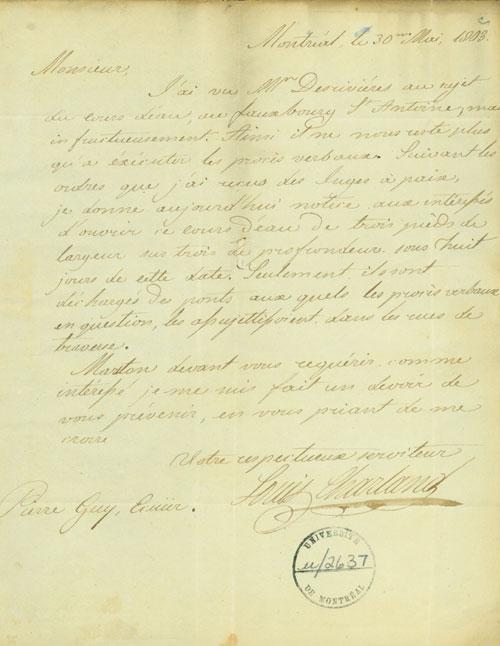 Montréal, le 30me Mai, 1803.
Monsieur,
J'ai vu Mr. Desrivières au sujet
du cours déau, au fauxbourg St Antoine, mais
infructueusement. Ainsi il ne nous reste plus
qu'à éxécuter les procès verbaux. Suivant les
ordres que j'ai reçus des Juges à paix,
je donne aujourd'hui notice aux intéressés
d'ouvrir ce cours déau de trois pieds de
largeur sur trois de profondeur sous huit
jours de cette date. Seulement ils sont
déchargés des ponts aux quels les procès verbaux
en question, les assujettissoient dans les rues de
traverse.
devant vous requérir comme
intéréssé je me suis fait un devoir de
vous prévenir, en vous priant de me
croire
Votre respectueux serviteur
Louis Charland
Pierre Guy, Ecuier.
UNIVERSITÉ
u/2637
DE MONTRÉAL